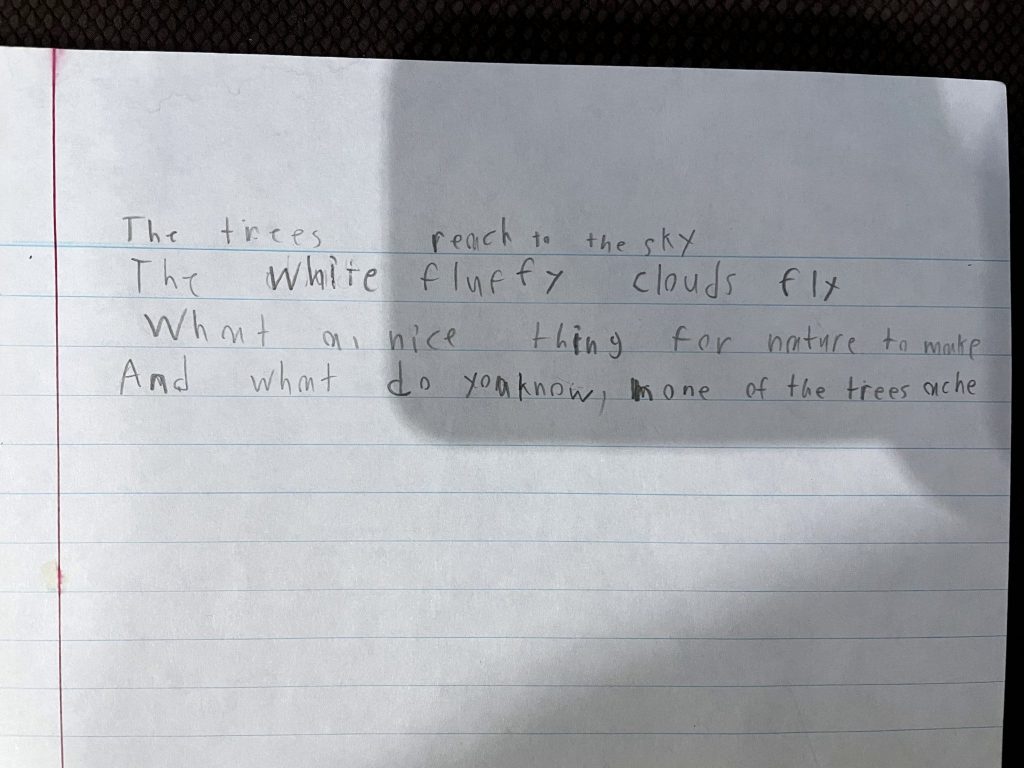 The trees reach to the sky
The white fluffy clouds fly
What a nice thing for nature to make
And what do you know, none of the trees ache